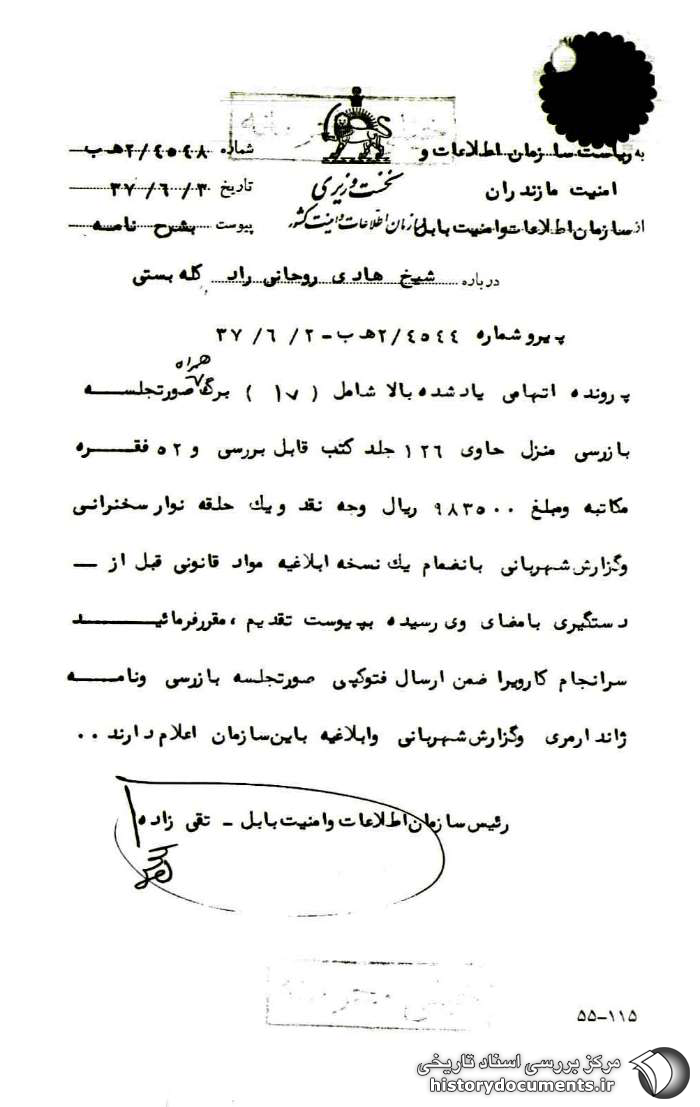 به ریاست سازمان اطلاعات و
امنیت مازندران
از سازمان اطلاعات و امنیت بابل
نخست وزیری
سازمان اطلاعات و امنیت کشور
شماره ۲/۴۵۴۸ ه‍ ب
تاریخ ۳۷/۶/۳
پیوست بشرح نامه
درباره شیخ هادی روحانی راد کله بستی
پیرو شماره ۲/۴۵۴۴ ه‍ ب - ۳۷/۶/۲
همراه
پرونده اتهامی یادشده بالا شامل (۱۷) برگ صورتجلسه
بازرسی منزل حاوی ۱۲۶ جلد کتب قابل بررسی و ۵۲ فقره
مکاتبه ومبلغ ۹۸۳۵۰۰ ریال وجه نقد ویك حلقه نوار سخنرانی
وگزارش شهربانی بانضمام یك نسخه ابلاغیه مواد قانونی قبل از —
دستگیری بامضای وی رسیده بپیوست تقدیم ، مقررفرمائید
سرانجام کارویرا ضمن ارسال فتوکپی صورتجلسه بازرسی ونامه
ژاندارمری وگزارش شهربانی وابلاغیه باین سازمان اعلام دارند . .
رئیس سازمان اطلاعات وامنیت بابل - تقی زاده
۵۵-۱۱۵
مرکز بررسی اسناد تاریخی
historydocuments.ir